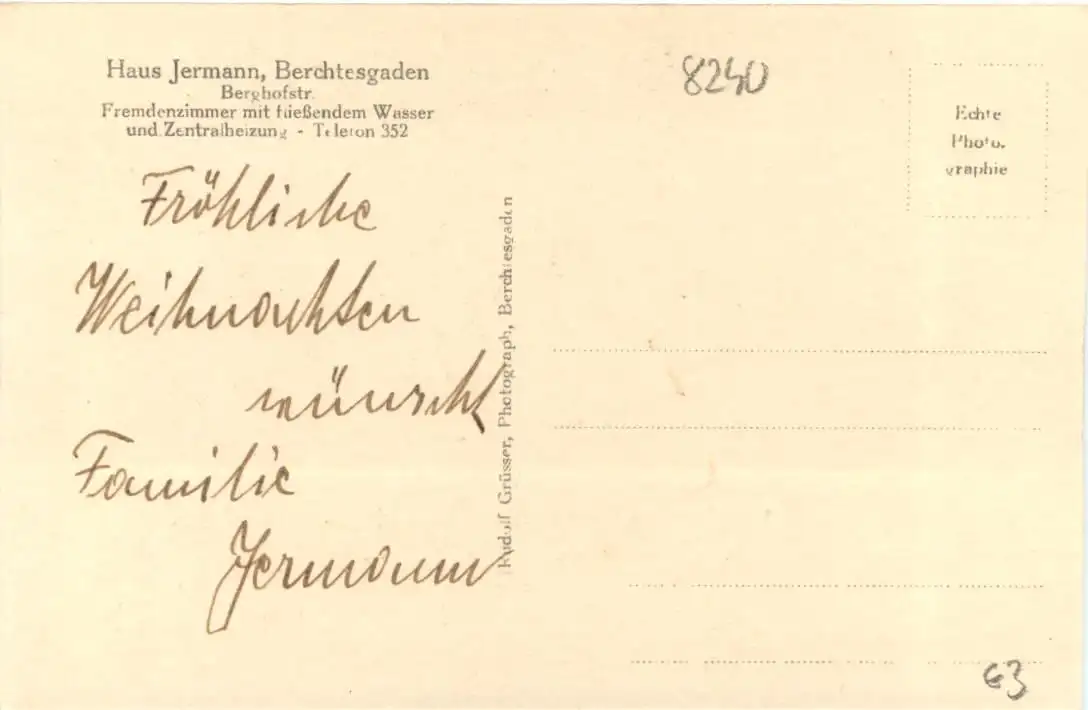 Haus Jermann, Berchtesgaden
Berghofstr.
Fremdenzimmer mit fließendem Wasser
und Zentralheizung - Telefon 352
8240
Echte
Photo-
graphie
Fröhliche
Weihnachten
wünscht
Familie
Jermann
Rudolf Grüsser, Photograph, Berchtesgaden
63